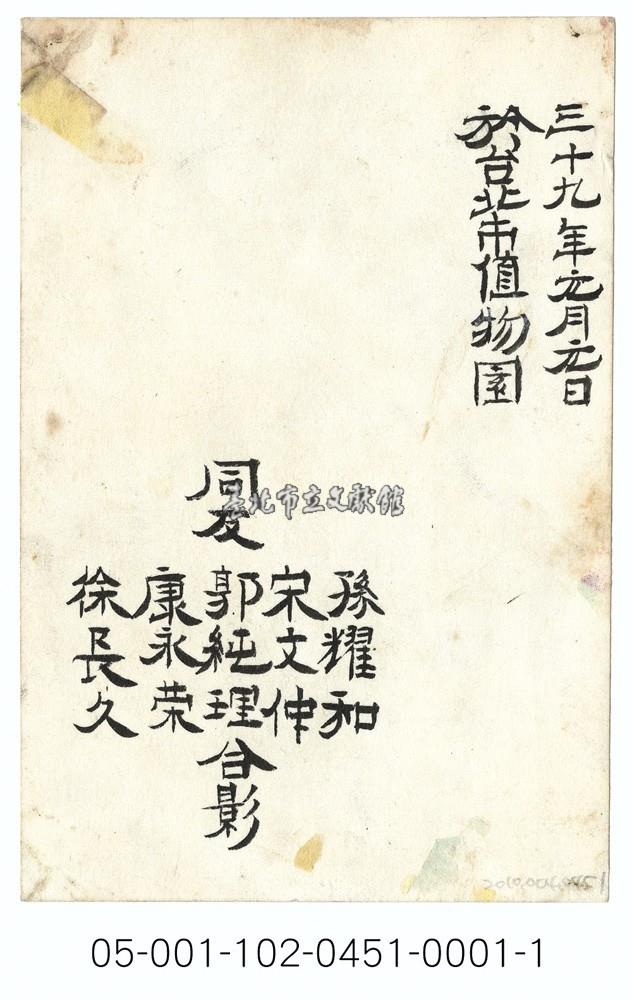 三十九年元月元日
於台北市值物園
同友
孫耀和
宋文伸
郭純理
康永荣
徐長久
合影
臺北市立文獻館
2010.004.0451
05-001-102-0451-0001-1